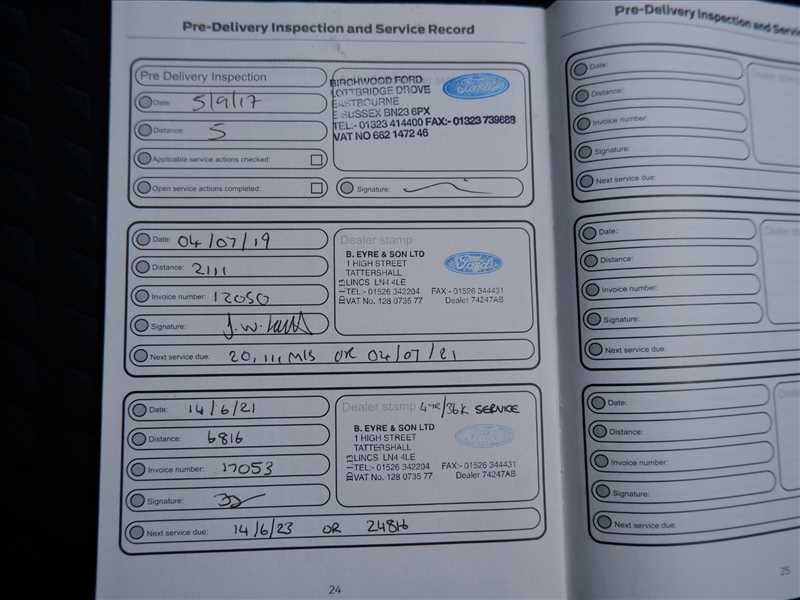 Pre-Delivery Inspection and Service Record
Pre Delivery Inspection
Date: 5/9/17
Distance: 5
Applicable service actions checked:
Open service actions completed:
BIRCHWOOD FORD
LOTTBRIDGE DROVE
EASTBOURNE
E SUSSEX BN23 6PX
TEL:- 01323 414400 FAX:- 01323 739688
VAT NO 662 1472 46
Ford
Signature:
Date: 04/07/19
Distance: 2111
Invoice number: 12050
Signature:
Next service due: 20,111 MLS OR 04/07/21
Dealer stamp
B. EYRE & SON LTD
1 HIGH STREET
TATTERSHALL
LINCS LN4 4LE
TEL:- 01526 342204 FAX:- 01526 344431
VAT No. 128 0735 77 Dealer 74247AB
Ford
Date: 14/6/21
Distance: 6816
Invoice number: 17053
Signature:
Next service due: 14/6/23 OR 24816
Dealer stamp 4YR/36K SERVICE
B. EYRE & SON LTD
1 HIGH STREET
TATTERSHALL
LINCS LN4 4LE
TEL:- 01526 342204 FAX:- 01526 344431
VAT No. 128 0735 77 Dealer 74247AB
24
Pre-Delivery Inspection and Servi
Date:
Distance:
Invoice number:
Signature:
Next service due:
Dealer stam
Date:
Distance:
Invoice number:
Signature:
Next service due:
Dealer
Date:
Distance:
Invoice number:
Signature:
Next service due:
25